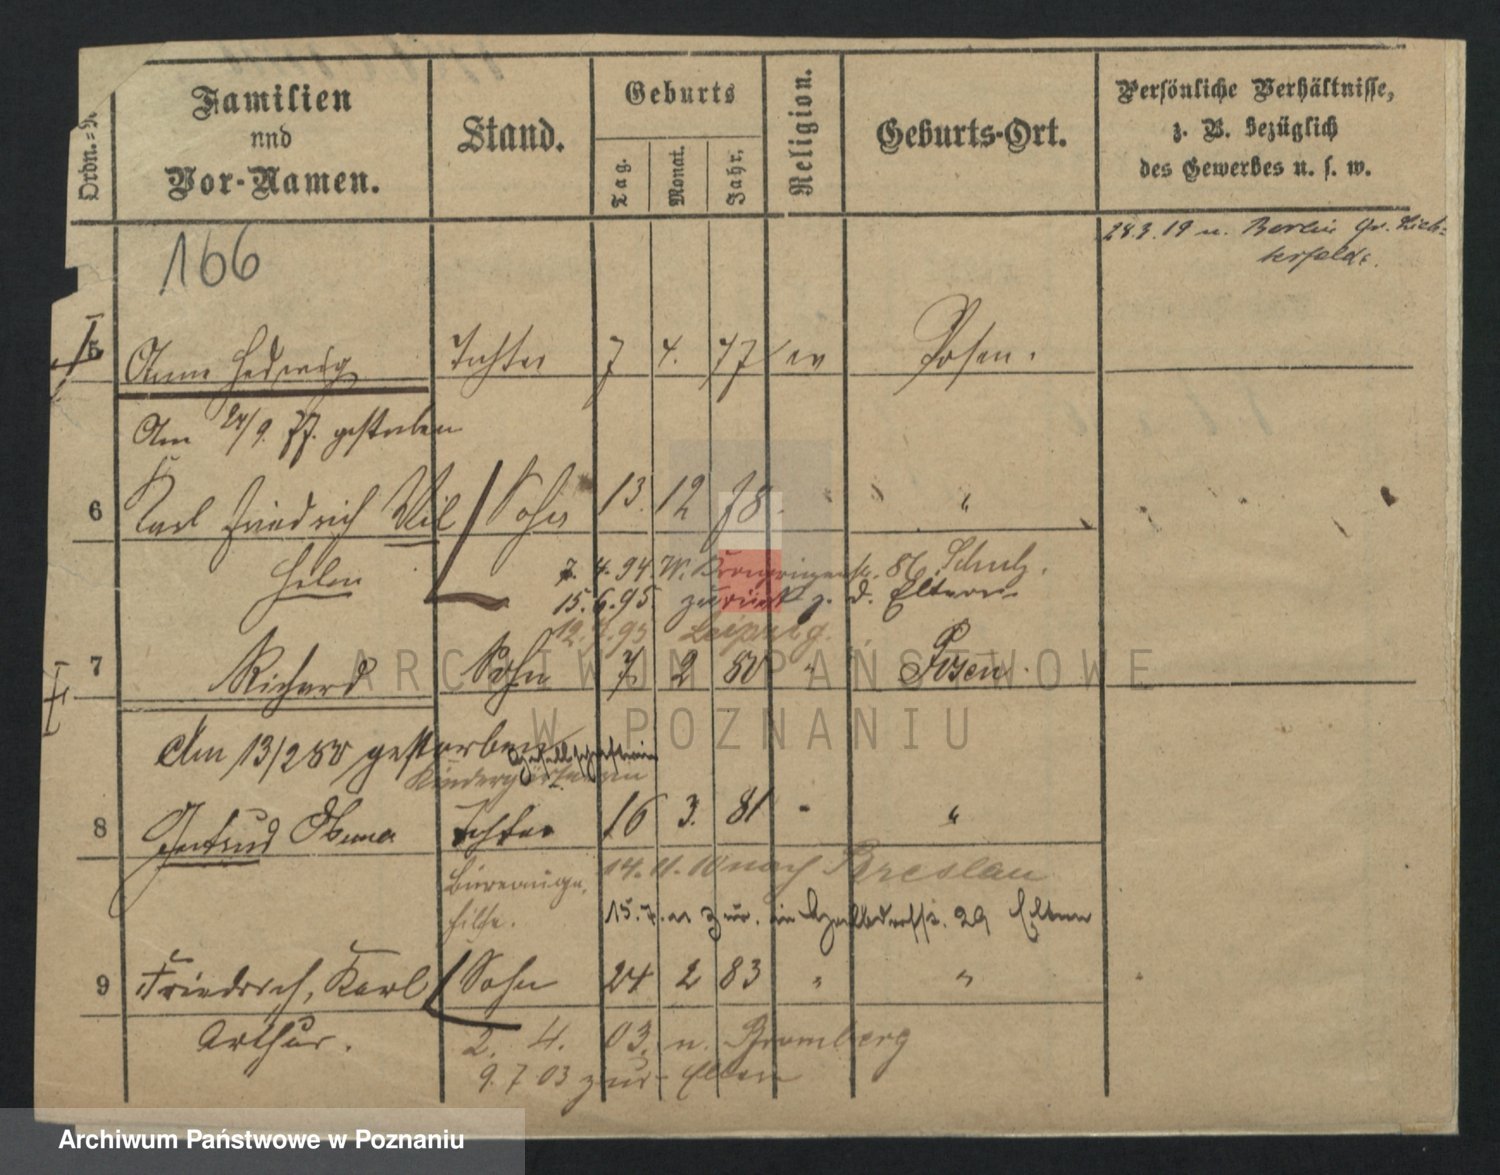 Ordn.=N
Familien
und
Vor-Namen.
Stand.
Geburts
Tag.
Monat.
Jahr.
Religion.
Geburts-Ort.
Persönliche Verhältnisse,
z. B. bezüglich
des Gewerbes u. s. w.
166
28.3.19 n. Berlin Gr. Lich-
terfelde.
5 Anna Hedwig Tochter 7 4. 77 ev Posen.
Am 24/9. 77. gestorben
6 Karl Friedrich Wil Sohn 13. 12 78. " "
helm
7. 4. 94 W. Kronprinzenstr. 86 Schulz.
15.6.95 zurück z. d. Eltern
12.7.95 Leipzig.
7 Richard Sohn 7 2 80 " Posen.
Am 13/2 80 gestorben
Gesellschafterin
Kindergärtnerin
8 Gertrud Emma Tochter 16 3. 81 " "
Bureauge-
hilfe.
14. 11. 10 nach Breslau
15.7.11 zur. in 29 Eltern
9 Friedrich, Karl Sohn 24 2 83 " "
Arthur.
2. 4. 03. n. Bromberg
9. 7 03 zur. Eltern
ARCHIWUM PAŃSTWOWE
W POZNANIU
Archiwum Państwowe w Poznaniu